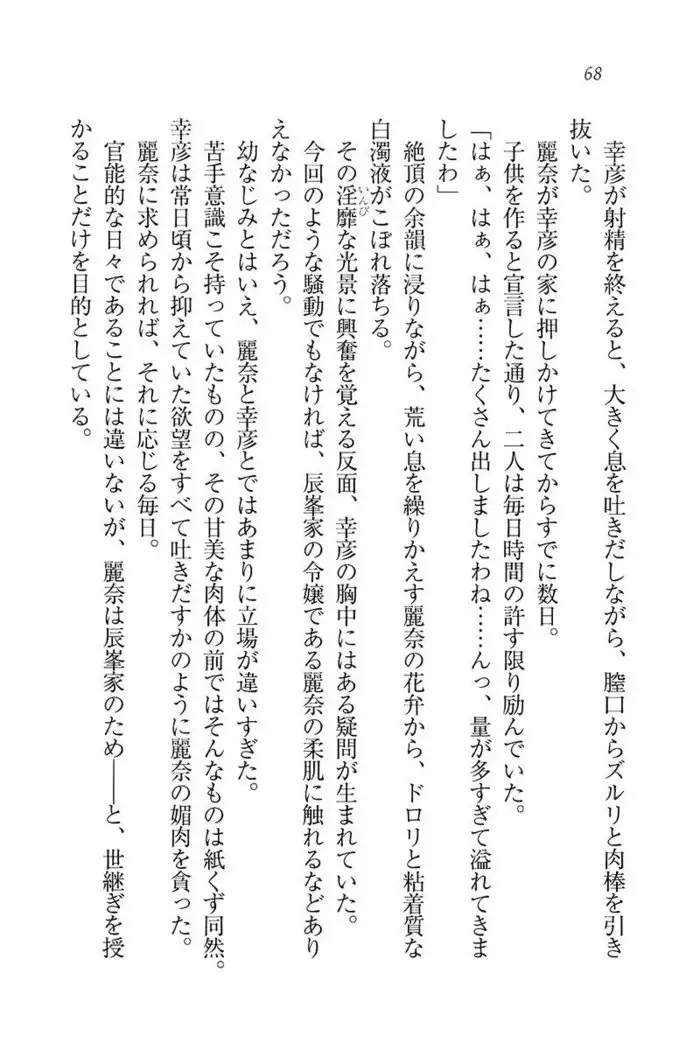 68
幸彦が射精を終えると、大きく息を吐きだしながら、膣口からズルリと肉棒を引き
抜いた。
麗奈が幸彦の家に押しかけてきてからすでに数日。
子供を作ると宣言した通り、二人は毎日時間の許す限り励んでいた。
「はぁ、はぁ、はぁ……たくさん出しましたわね……んっ、量が多すぎて溢れてきま
したわ」
絶頂の余韻に浸りながら、荒い息を繰りかえす麗奈の花弁から、ドロリと粘着質な
白濁液がこぼれ落ちる。
その淫靡な光景に興奮を覚える反面、幸彦の胸中にはある疑問が生まれていた。
いんび
今回のような騒動でもなければ、辰峯家の令嬢である麗奈の柔肌に触れるなどあり
えなかっただろう。
幼なじみとはいえ、麗奈と幸彦とではあまりに立場が違いすぎた。
苦手意識こそ持っていたものの、その甘美な肉体の前ではそんなものは紙くず同然。
幸彦は常日頃から抑えていた欲望をすべて吐きだすかのように麗奈の媚肉を貪った。
麗奈に求められれば、それに応じる毎日。
官能的な日々であることには違いないが、麗奈は辰峯家のため――と、世継ぎを授
かることだけを目的としている。